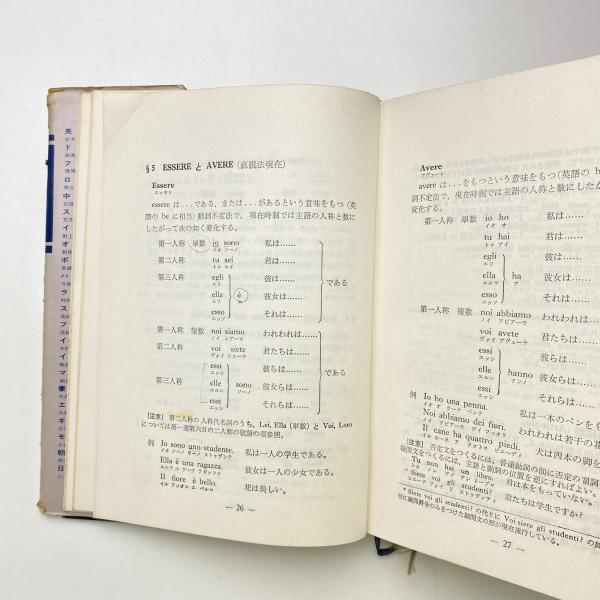 §5 ESSERE と AVERE (直説法現在)
Essere
エッセレ
essere は...である、または...があるという意味をもつ (英
語の be に相当) 動詞不定法で、現在時制では主語の人称と数に
したがって次の如く変化する。
第一人称 単数 io sono 私は……
イオ ソーノ
第二人称 tu sei 君は……
トゥ セイ
第三人称 egli 彼は……
エリ
ella è 彼女は…… である
エラ
esso それは……
エッソ
第一人称 複数 noi siamo われわれは……
ノイ シアーモ
第二人称 voi siete 君たちは……
ヴォイ シエーテ
essi 彼らは……
エッシ
第三人称 elle sono 彼女らは……
エルレ ソーノ
essi それらは……
エッシ
〔注意〕 第二人称の人称代名詞のうち、Lei, Ella (単数) と Voi, Loro
については第一週第六日の二人称の敬語の項参照。
例 Io sono uno studente. 私は一人の学生である。
イオ ソーノ ウーノ ストゥデンテ
Ella è una ragazza. 彼女は一人の少女である。
エルラ エ ウーナ ラガッツァ
Il fiore è bello. 花は美しい。
イル フィオレ エ ベルロ
— 26 —
Avere
アヴェーレ
avere は...をもつという意味をもつ (英語の h
詞不定法で、現在時制では主語の人称と数にしたが
変化する。
第一人称 単数 io ho 私は……
イオ オ
tu hai 君は……
トゥ アイ
egli 彼は……
エリ
ella ha 彼女は……
エルラ ア
esso それは……
エッソ
第一人称 複数 noi abbiamo われわれは……
ノイ アビアーモ
voi avete 君たちは……
ヴォイ アヴェーテ
essi 彼らは……
エッシ
elle hanno 彼女らは……
エルレ アンノ
essi それらは……
エッシ
例 Io ho una penna. 私は一本のペンをも
イオ オ ウーナ ペンナ
Noi abbiamo dei fiori. われわれは若干の花
ノイ アビアーモ デイ フィオーリ
Il cane ha quattro piedi. 犬は四本の脚が
イル カーネ ア クァトゥロ ピエーディ
〔注意〕 否定文をつくるには、普通動詞の前に否定の副詞
疑問文をつくるには、主語と動詞の位置を逆にすればよい。
Tu non hai un libro. 君は本をもっていない。
トゥ ノン アイ ウン リーブロ
* Siete voi gli studenti? 君たちは学生ですか?
シエーテ ヴォイ リ ストゥデンティ
* Siete voi gli studenti? の代りに Voi siete gli studenti? の如
りに疑問符号のみをつけた疑問文の形が現在流行している。
— 27 —